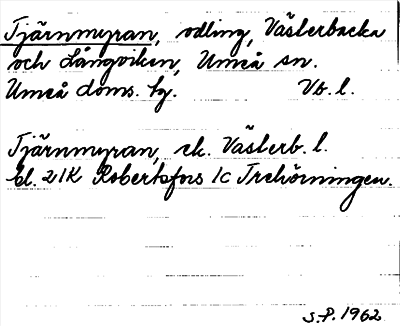 Tjärnmyran, odling, Västerbacka
och Långviken, Umeå sn.
Umeå doms. bg. Vb. l.
Tjärnmyran, ek. Västerb. l.
bl. 21K Robertsfors 1c Trehörningen.
S.P. 1962